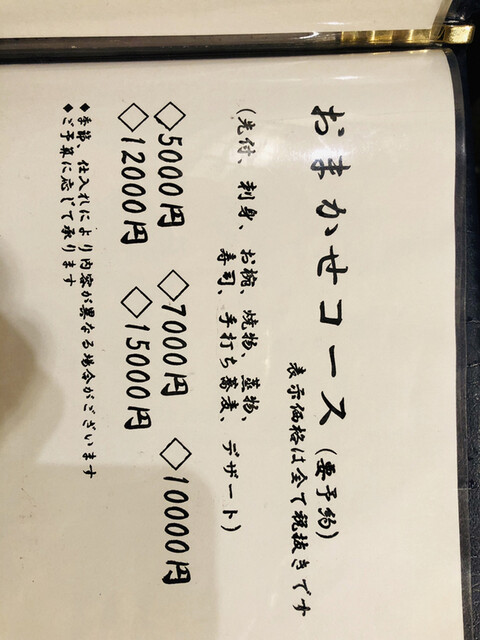 おまかせコース(要予約)
表示価格は全て税抜きです
(先付、刺身、お椀、焼物、蒸物、
寿司、手打ち蕎麦、デザート)
◇5000円 ◇7000円 ◇10000円
◇12000円 ◇15000円
◆季節、仕入れにより内容が異なる場合がございます
◆ご予算に応じて承ります